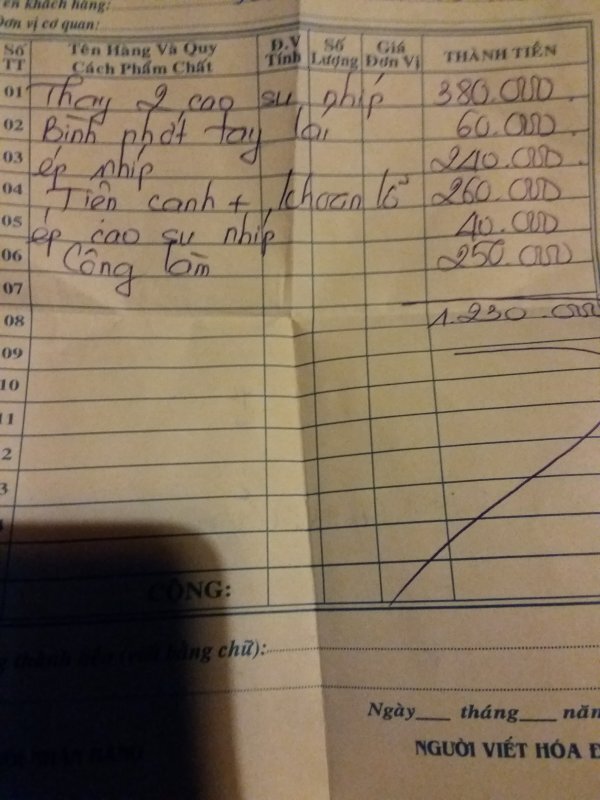 ên khách hàng:
Đơn vị cơ quan:
Số TT Tên Hàng Và Quy Cách Phẩm Chất Đ.V Tính Số Lượng Giá Đơn Vị THÀNH TIỀN
01 Thay 2 cao su nhíp 380.000
02 Bình phớt tay lái 60.000
03 ép nhíp 240.000
04 Tiện canh + khoan lỗ 260.000
05 ép cao su nhíp 40.000
06 Công làm 250.000
07
08 1.230.000
09
10
11
2
3
CỘNG:
bằng chữ):
Ngày tháng năm
NGƯỜI VIẾT HÓA Đ